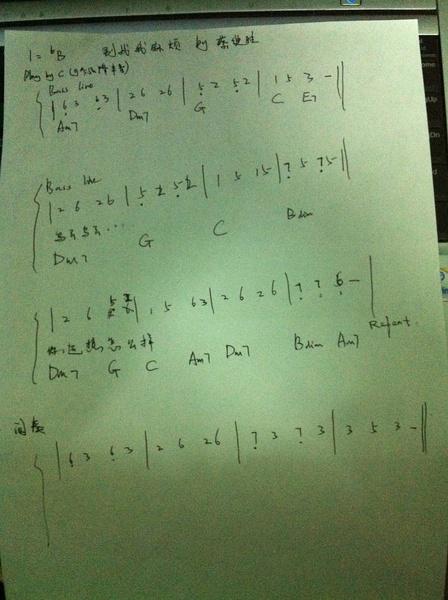 1=ᵇB 别找我麻烦 by 蔡健雅
Play by C
Bass line
| 6 3 6 3 | 2 6 2 6 | 5 2 5 2 | 1 5 3 - ||
Am7 Dm7 G C E7
Bass line
| 2 6 2 6 | 5 2 5 2 | 1 5 1 5 | 7 5 7 5 ||
Dm7 G C Bdim
| 2 6 5 | 1 5 6 3 | 2 6 2 6 | 7 7 6 - |
你还想怎么样 Repeat.
Dm7 G C Am7 Dm7 Bdim Am7
间奏
| 6 3 6 3 | 2 6 2 6 | 7 3 7 3 | 3 5 3 - ||